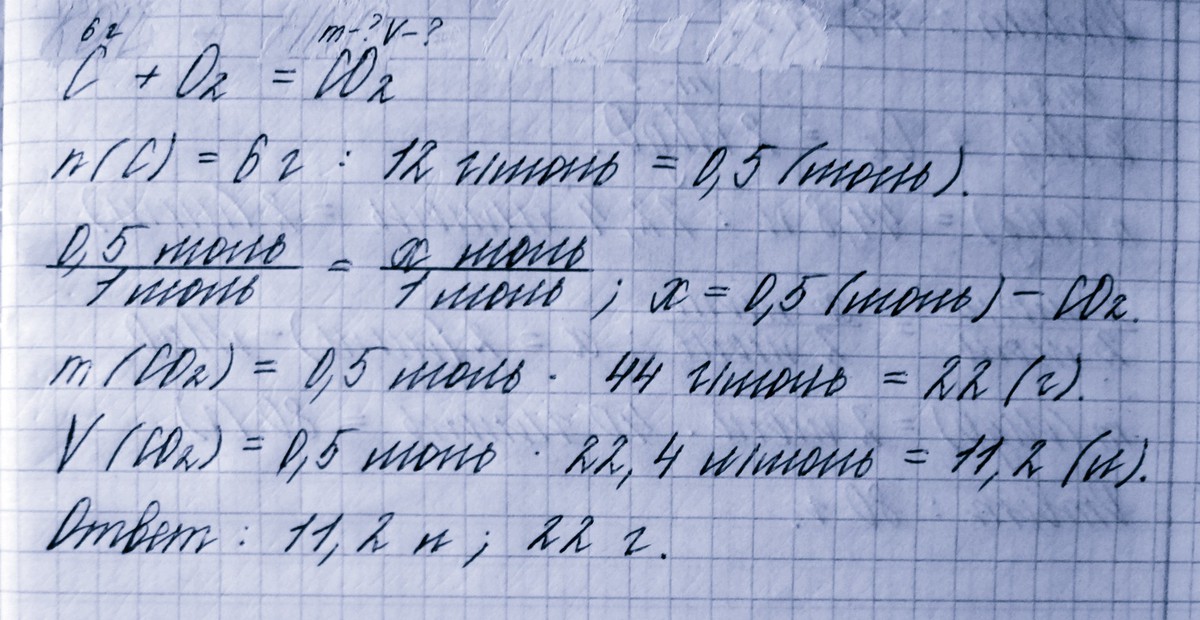 6 г m-? V-?
C + O₂ = CO₂
n(C) = 6 г : 12 г/моль = 0,5 (моль).
0,5 моль / 1 моль = x моль / 1 моль ; x = 0,5 (моль) - CO₂.
m (CO₂) = 0,5 моль · 44 г/моль = 22 (г).
V (CO₂) = 0,5 моль · 22,4 л/моль = 11,2 (л).
Ответ : 11,2 л ; 22 г.